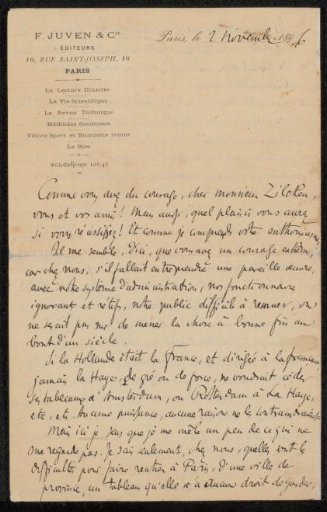 F. JUVEN & Cie
ÉDITEURS
10, RUE SAINT-JOSEPH, 10
PARIS
La Lecture Illustrée
La Vie Scientifique
La Revue Technique
Méthodes Sanderson
Le Rire
Paris, le 2 novembre 1896
Comme vous avez du courage, cher monsieur Zilcken,
vous et vos amis! Mais aussi, quel plaisir vous aurez
si vous réussissez! Et comme je comprends votre enthousiasme
Il me semble, d'ici, que vous avez un courage extrême,
car chez nous, s'il fallait entreprendre une pareille œuvre,
avec notre système d'administration, nos fonctionnaires
ignorants et rétifs, notre public difficile à remuer, on
ne serait pas sûr de mener la chose à bonne fin au
bout d'un siècle.
Si la Hollande était la France, et dirigée à la française
jamais la Haye, de gré ou de force, ne voudrait céder
ses tableaux à Amsterdam, ou Rotterdam à La Haye,
etc, etc. Aucune puissance, aucune raison ne les contraindraient
Mais ici je sens que je me mêle un peu de ce qui ne
me regarde pas. Je sais seulement, chez nous, quelles sont les
difficultés pour faire rentrer à Paris, d'une ville de
province, un tableau qu'elle n'a aucun droit de garder,